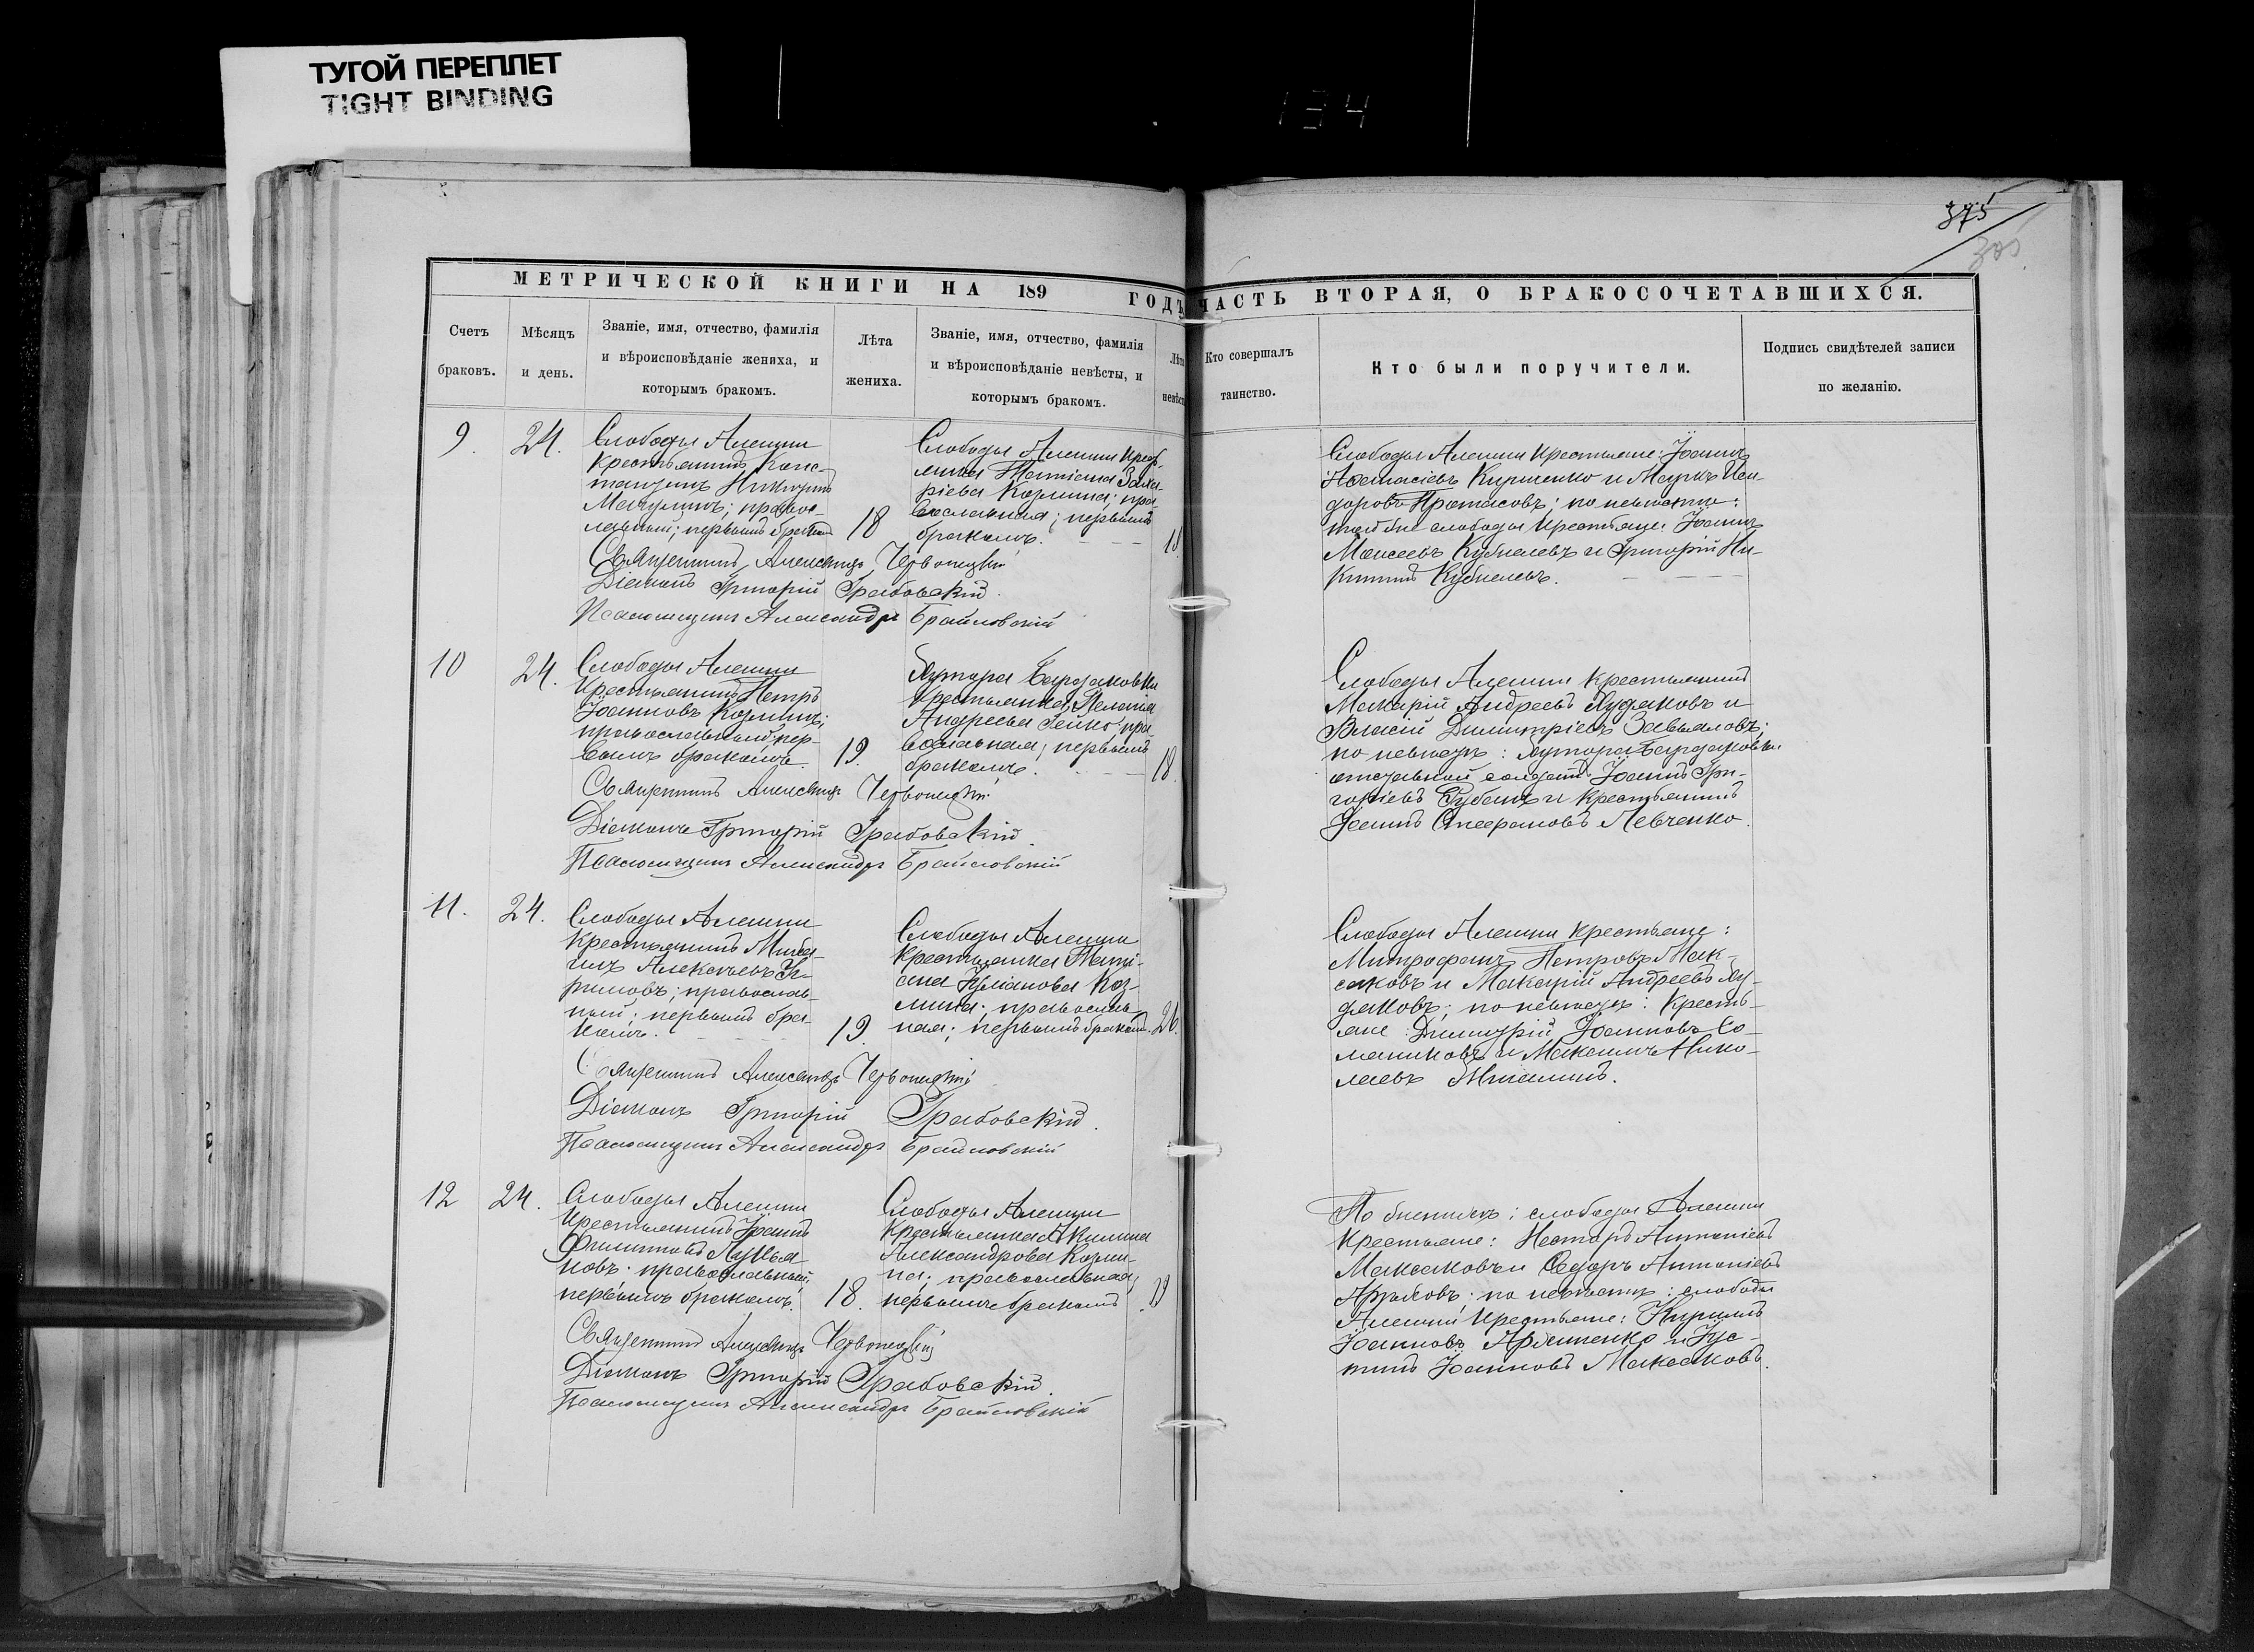 ТУГОЙ ПЕРЕПЛЕТ
TIGHT BINDING
134
375
МЕТРИЧЕСКОЙ КНИГИ НА 189 ГОДЪ
ЧАСТЬ ВТОРАЯ, О БРАКОСОЧЕТАВШИХСЯ.
Счетъ браковъ.
Мѣсяцъ и день.
Званіе, имя, отчество, фамилія
и вѣроисповѣданіе жениха, и
которымъ бракомъ.
Лѣта
жениха.
Званіе, имя, отчество, фамилія
и вѣроисповѣданіе невѣсты, и
которымъ бракомъ.
Лѣта
невѣст
Кто совершалъ
таинство.
Кто были поручители.
Подпись свидѣтелей записи
по желанію.
9. 24.
Слободы Алешки
крестьянинъ Конс-
тантинъ Никитинъ
православ-
лавный; первымъ бракомъ 18
Слободы Алешки крест-
янка Татіана Заха-
ріева Козмина; пра-
вославная; первымъ
бракомъ. 18
Священникъ Александръ Червонецкій
Діаконъ Григорій Грабовскій.
Псаломщикъ Александръ Браиловскій
Слободы Алешки крестьяне: Іоаннъ
Аѳанасіевъ Кириченко и Маркъ Иси-
доровъ Протасовъ; по невѣстѣ:
той же слободы крестьяне: Іоаннъ
Моисеевъ и Григорій Ни-
китинъ
10 24.
Слободы Алешки
крестьянинъ Петръ
Іоанновъ Козминъ;
православный; пер-
вымъ бракомъ. 19.
Хутора
крестьянка Пелагія
Андреева Гейко; пра-
вославная; первымъ
бракомъ. 18.
Священникъ Александръ Червонецкій
Діаконъ Григорій Грабовскій.
Псаломщикъ Александръ Браиловскій
Слободы Алешки крестьянинъ
Макарій Андреевъ Худяковъ и
Власій Димитріевъ Завьяловъ;
по невѣстѣ: хутора
отставной солдатъ Іоаннъ Гри-
горіевъ и крестьянинъ
Іоаннъ Левченко.
11. 24.
Слободы Алешки
крестьянинъ Миха-
илъ Алексѣевъ
православ-
ный; первымъ бра-
комъ. 19.
Слободы Алешки
крестьянка Тати-
ана Іуліанова Коз-
мина; православ-
ная; первымъ бракомъ. 20.
Священникъ Александръ Червонецкій
Діаконъ Григорій Грабовскій.
Псаломщикъ Александръ Браиловскій
Слободы Алешки крестьяне:
Митрофанъ Петровъ Мак-
саковъ и Макарій Андреевъ Ху-
дяковъ; по невѣстѣ: кресть-
яне: Димитрій Іоанновъ Со-
лениковъ и Максимъ Нико-
лаевъ
12 24.
Слободы Алешки
крестьянинъ Іоаннъ
Филипповъ Лукья-
новъ; православный;
первымъ бракомъ. 18.
Слободы Алешки
крестьянка Акилина
Александрова Козми-
на; православная;
первымъ бракомъ. 19
Священникъ Александръ Червонецкій
Діаконъ Григорій Грабовскій.
Псаломщикъ Александръ Браиловскій
По женихѣ: слободы Алешки
крестьяне: Несторъ Антоніевъ
Максаковъ и Ѳедоръ Антоніевъ
по невѣстѣ: слободы
Алешки крестьяне: Кириллъ
Іоанновъ и Іус-
тинъ Іоанновъ Максаковъ.